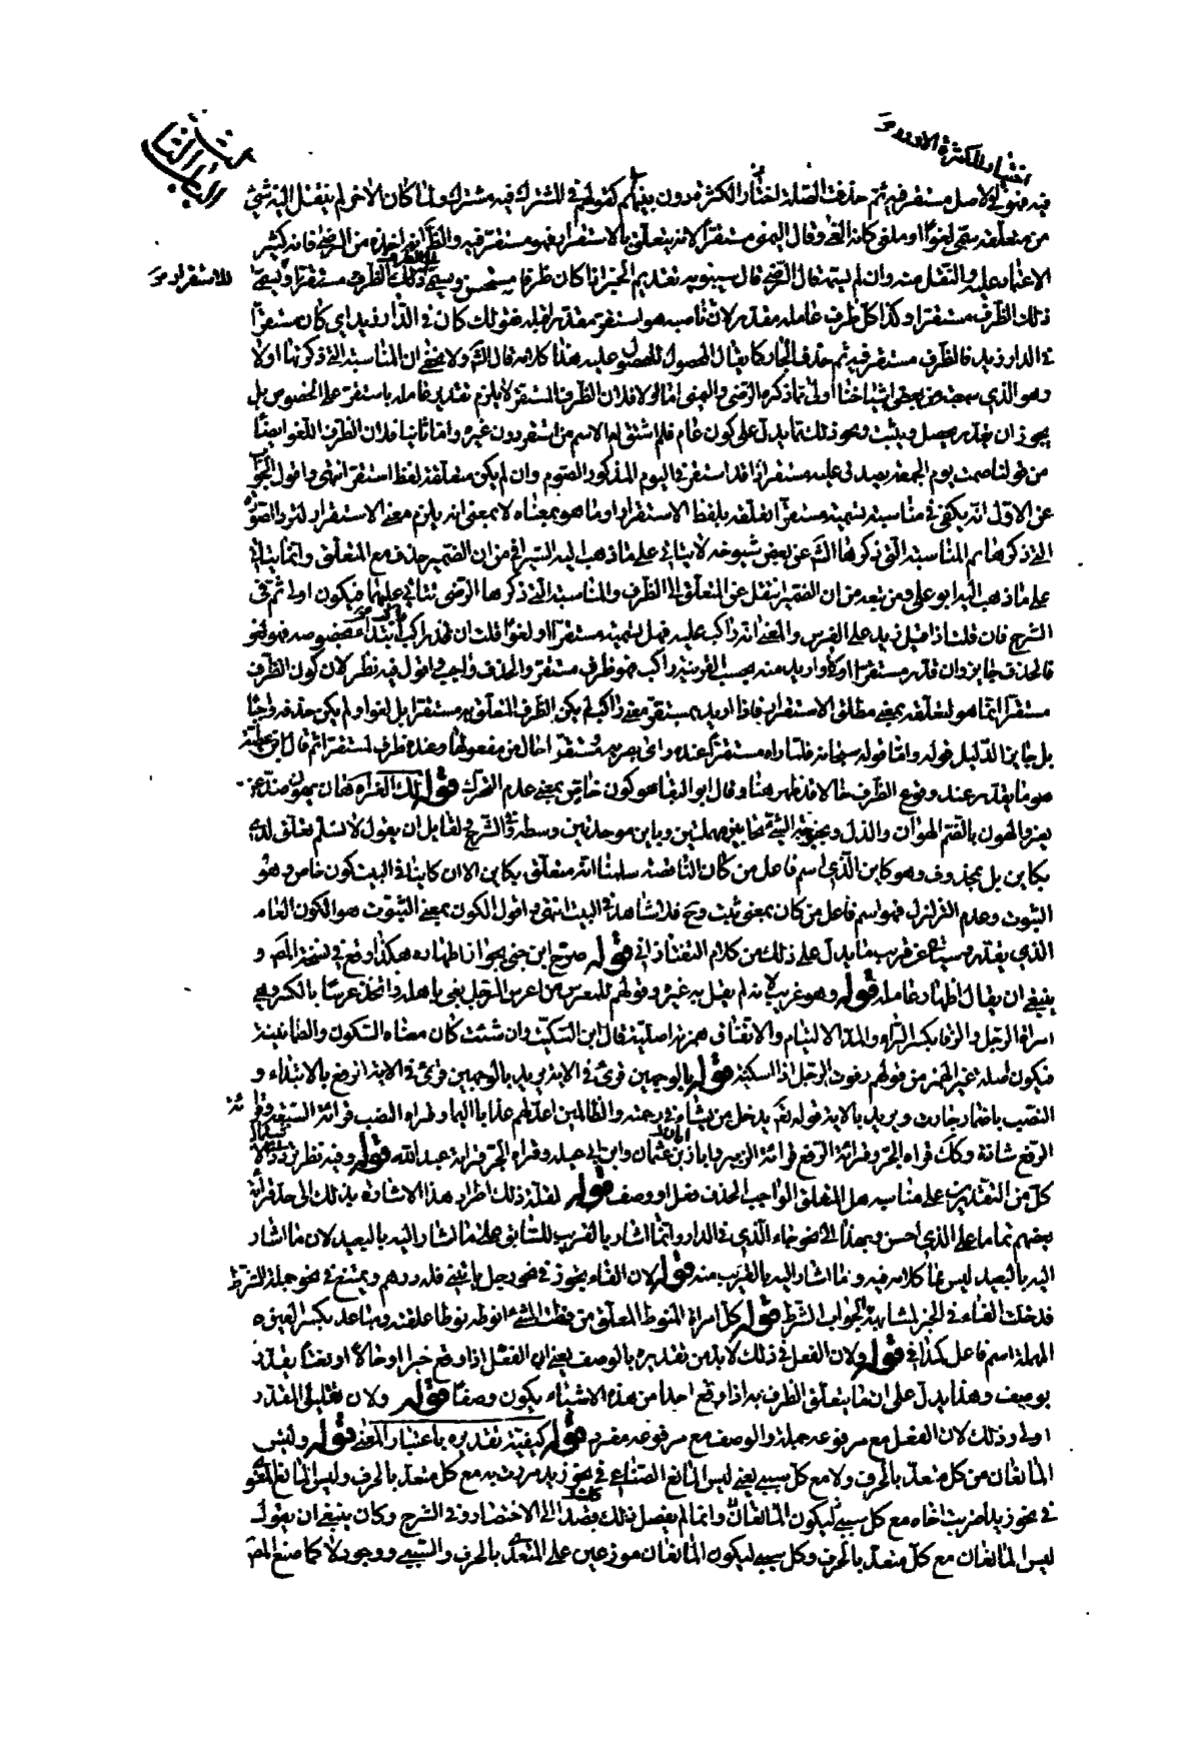 الباب الثالث
فيه فهو في الاصل مستقر فيه ثم حذفت الصلة اختصارا لكثرة دورن بينهم كقولهم في المشترك فيه مشترك ولما كان الاخر لم ينتقل اليه شيء
من متعلقه سمي لغوا او ملغى كانه الغي وقال اليمني مستقرا لانه يتعلق بالاستقرار فهو مستقر فيه والظاهر اخذه من الرضي فانه كثير
الاعتماد عليه والنقل منه وان لم يسمه قال الرضي قال سيبويه تقديم الخبر اذا كان ظرفا مستحسن ويسمى ذلك الظرف مستقرا
ذلك الظرف مستقرا وكذا كل ظرف عامله مقدر لان ناصبه هو استقر مقدر قبله فقولك كان في الدار زيد اي كان مستقرا
في الدار زيد فالظرف مستقر فيه ثم حذف الجار كما يقال المحصول للمحصول عليه هذا كلامه قال الش ولا يخفى ان المناسبة التي ذكرتها اولا
وهو الذي سمعته من بعض اشياخنا اولى مما ذكره الرضي واليمني اما اولا فلان الظرف المستقر لا يلزم تقدير عامله باستقر على الخصوص بل
يجوز ان يقدر بحصل ويثبت ونحو ذلك مما يدل على كون عام فلم اشتق له الاسم من استقر دون غيره واما ثانيا فلان الظرف اللغو ايضا
من قولنا صمت يوم الجمعة يصدق عليه مستقرا اذ قد استقر في اليوم المذكور الصوم وان لم يكن متعلقه لفظ استقر انتهى واقول الجواب
عن الاول انه يكفي في مناسبة تسميته مستقرا تعلقه بلفظ الاستقرار او بما هو بمعناه لا بمعنى انه يلزم معنى الاستقرار لترد الصور
التي ذكرها ثم المناسبة التي ذكرها الش عن بعض شيوخه لا يتاتى على ما ذهب اليه السيرافي من ان الضمير حذف مع المتعلق وانما يتاتى
على ما ذهب اليه ابو علي ومن بعده من ان الضمير انتقل عن المتعلق الى الظرف والمناسبة التي ذكرها الرضي تتاتى عليهما فيكون اولى ثم في
الشرح فان قلت اذا قيل زيد على الفرس والمعنى انه راكب عليه فهل تسميته مستقرا او لغوا قلت ان قدر راكب ابتداء بخصوصه فهو لغو
فالحذف جايز وان قدر مستقر اولا واريد منه بحسب القرينة راكب فهو ظرف مستقر والحذف واجب واقول فيه نظر لان كون الظرف
مستقرا انما هو لتعلقه بمعنى مطلق الاستقرار فاذا اريد بمستقر معنى راكب لم يكن الظرف المتعلق به مستقرا بل لغوا ولم يكن حذفه واجبا
بل جايزا لدليل قوله واما قوله سبحانه فلما راه مستقرا عنده مستقرا حال من مفعولها وعنده ظرف لمستقرا ثم قال ابن عطية
هو بما يقدر عند وقوع الظرف حالا قد ظهر هنا وقال ابو البقا هو كون خاص بمعنى عدم التحرك قوله لك العز
يعز والهون بالضم الهوان والذل لقايل ان يقول لا نسلم تعلق لدى
بكاين بل بمحذوف وهو كاين الذي اسم فاعل من كان الناقصة سلمنا انه متعلق بكاين الا ان كاينا في البيت كون خاص وهو
الثبوت وعدم التزلزل فهو اسم فاعل من كان بمعنى ثبت وح فلا شاهد في البيت انتهى واقول الكون بمعنى الثبوت هو الكون العام
الذي يقدر وسياتي عن قريب ما يدل على ذلك من كلام التفتازاني قوله صرح ابن جني بجواز اظهاره هكذا وقع في نسخة المص و
ينبغي ان يقال اظهار عامله قوله وهو غريب لانه لم يقل به غيره وقولهم للمعرس من اعرس الرجل بنى باهله واتخذ عرسا بالكسر وهي
امراة الرجل والرفا بكسر الراء والمد الالتيام والاتفاق همزته اصلية قال ابن السكيت وان شئت كان معناه السكون والطمانينة
فيكون اصله غير الهمز من قولهم رفوت الرجل اذا سكنته قوله بالوجهين قرئ في الاية يريد بالوجهين قرئ في الاية الرفع بالابتداء و
النصب باضمار ويريد بالاية قوله تع يدخل من يشاء في رحمته والظالمين اعد لهم عذابا اليما وقراءة النصب قرائة السبعة وقرائة
الرفع شاذة قرائة الزبير وابان بن عثمان وابن ابي عبلة وقراءة الجر قراءة عبد الله قوله وفيه نظر
كل من التقديرين على مناسبه هل المتعلق الواجب الحذف فعل او وصف قوله لقلة ذلك اطراد هذا الاشارة بذلك الى حذف
بعضهم تماما على الذي احسن وبهذا الى نحو جاء الذي في الدار وانما اشار بالقريب للسابق على ما اشار اليه بالبعيد لان ما اشار
اليه بالبعيد ليس مما كلامه فيه وما اشار اليه بالقريب منه قوله لان الفاء يجوز في نحو رجل ياتيني فله درهم ويمتنع في نحو جملة الشرط
فدخلت الفاء في الخبر لمشابهته لجواب الشرط قوله كل امراة المنوط المعلق من نطت الشيء انوطه نوطا علقته ومباعد بكسر العين
المهملة اسم فاعل كذا في قوله ولان الفعل في ذلك لابد من تقديره بالوصف يعني ان الفعل اذا وقع خبرا او حالا او نعتا يقدر
بوصف وهذا يدل على ان ما يتعلق الظرف به اذا وقع احدا من هذه الاشياء يكون وصفا قوله ولان تقليل المقدر
اولى وذلك لان الفعل مع مرفوعه جملة والوصف مع مرفوعه مفرد قوله كيفية تقديره باعتبار المعنى قوله وليس
المانعان من كل متعد بالحرف ولا مع كل سببي يعني ليس المانع الصناعي في نحو زيد مررت به مع كل متعد بالحرف وليس المانع المعنوي
في نحو زيدا ضربت اخاه مع كل سببي ليكون المانعان وانما لم يفصل ذلك قصدا الى الاختصار وفي الشرح وكان ينبغي ان يقول
ليس المانعان مع كل متعد بالحرف وكل سببي ليكون المانعان موزعين على المتعدي بالحرف والسببي ووجود لا كما صنع المص